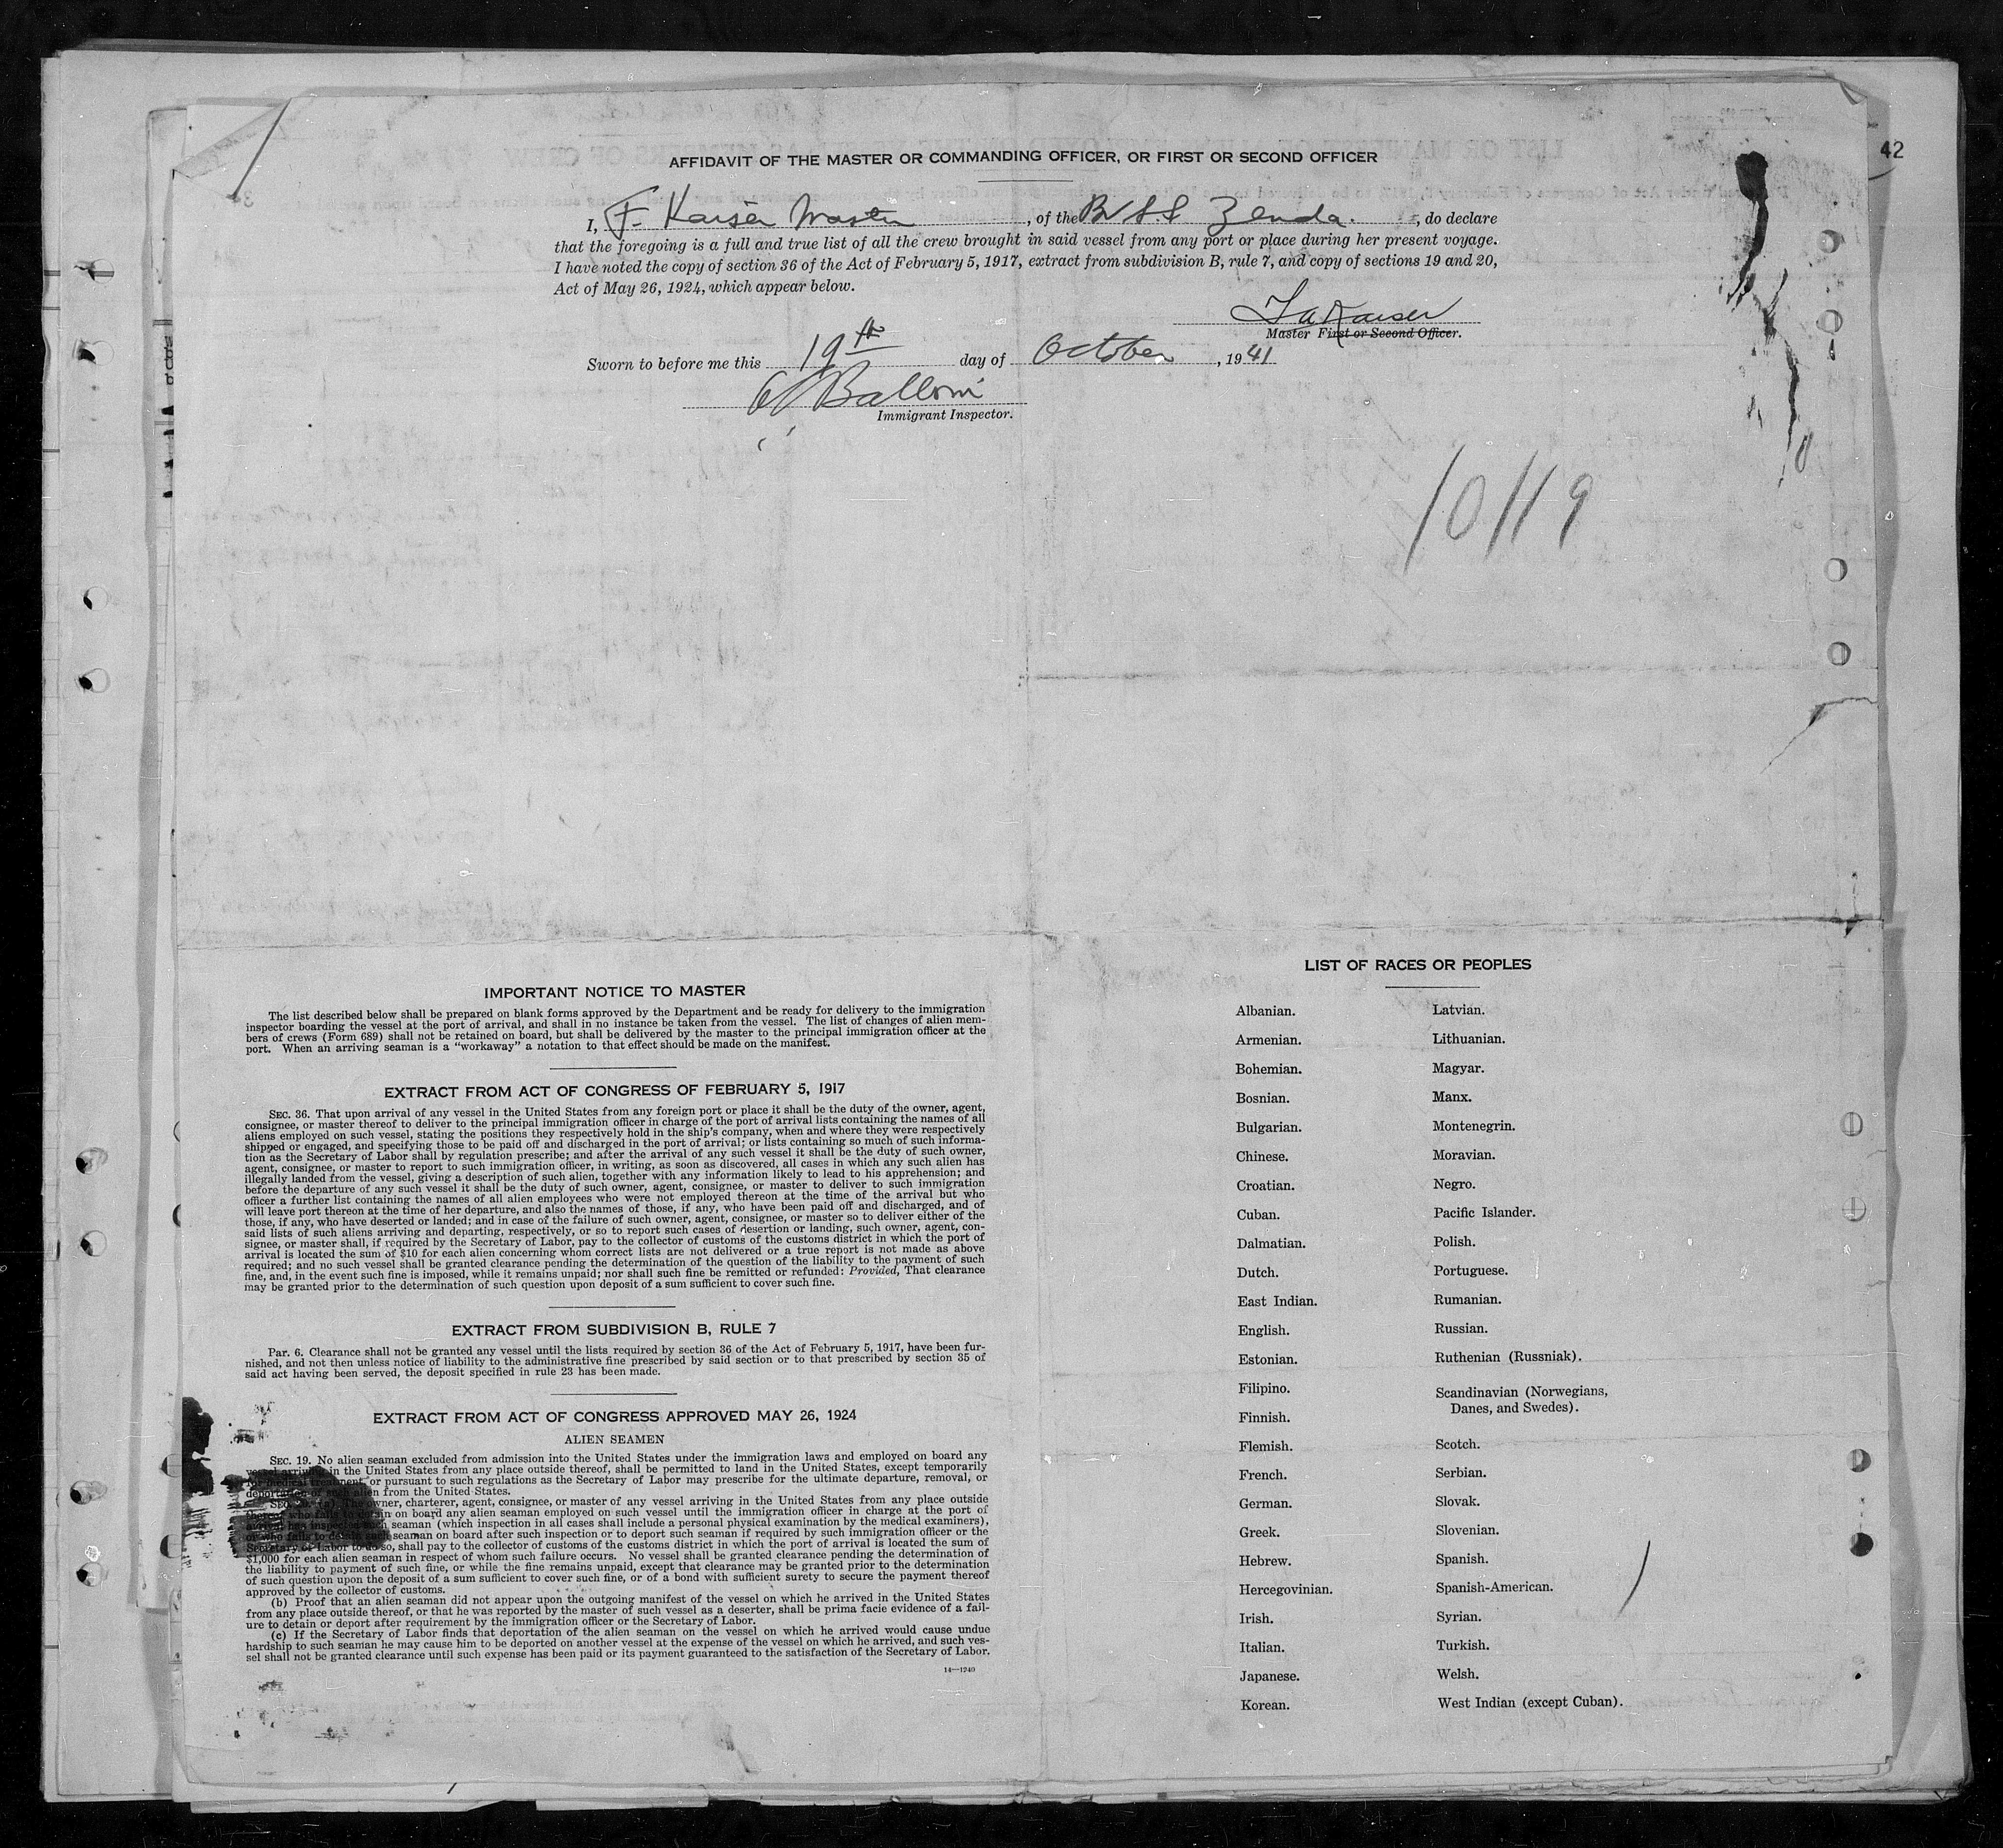 42
AFFIDAVIT OF THE MASTER OR COMMANDING OFFICER, OR FIRST OR SECOND OFFICER
I, F. Kaiser Master, of the Br SS Zenda., do declare
that the foregoing is a full and true list of all the crew brought in said vessel from any port or place during her present voyage.
I have noted the copy of section 36 of the Act of February 5, 1917, extract from subdivision B, rule 7, and copy of sections 19 and 20,
Act of May 26, 1924, which appear below.
Kaiser
Master First or Second Officer.
Sworn to before me this 19th day of October, 1941
Immigrant Inspector.
10/19
IMPORTANT NOTICE TO MASTER
The list described below shall be prepared on blank forms approved by the Department and be ready for delivery to the immigration
inspector boarding the vessel at the port of arrival, and shall in no instance be taken from the vessel. The list of changes of alien mem-
bers of crews (Form 689) shall not be retained on board, but shall be delivered by the master to the principal immigration officer at the
port. When an arriving seaman is a "workaway" a notation to that effect should be made on the manifest.
EXTRACT FROM ACT OF CONGRESS OF FEBRUARY 5, 1917
SEC. 36. That upon arrival of any vessel in the United States from any foreign port or place it shall be the duty of the owner, agent,
consignee, or master thereof to deliver to the principal immigration officer in charge of the port of arrival lists containing the names of all
aliens employed on such vessel, stating the positions they respectively hold in the ship's company, when and where they were respectively
shipped or engaged, and specifying those to be paid off and discharged in the port of arrival; or lists containing so much of such informa-
tion as the Secretary of Labor shall by regulation prescribe; and after the arrival of any such vessel it shall be the duty of such owner,
agent, consignee, or master to report to such immigration officer, in writing, as soon as discovered, all cases in which any such alien has
illegally landed from the vessel, giving a description of such alien, together with any information likely to lead to his apprehension; and
before the departure of any such vessel it shall be the duty of such owner, agent, consignee, or master to deliver to such immigration
officer a further list containing the names of all alien employees who were not employed thereon at the time of the arrival but who
will leave port thereon at the time of her departure, and also the names of those, if any, who have been paid off and discharged, and of
those, if any, who have deserted or landed; and in case of the failure of such owner, agent, consignee, or master so to deliver either of the
said lists of such aliens arriving and departing, respectively, or so to report such cases of desertion or landing, such owner, agent, con-
signee, or master shall, if required by the Secretary of Labor, pay to the collector of customs of the customs district in which the port of
arrival is located the sum of $10 for each alien concerning whom correct lists are not delivered or a true report is not made as above
required; and no such vessel shall be granted clearance pending the determination of the question of the liability to the payment of such
fine, and, in the event such fine is imposed, while it remains unpaid; nor shall such fine be remitted or refunded: Provided, That clearance
may be granted prior to the determination of such question upon deposit of a sum sufficient to cover such fine.
EXTRACT FROM SUBDIVISION B, RULE 7
Par. 6. Clearance shall not be granted any vessel until the lists required by section 36 of the Act of February 5, 1917, have been fur-
nished, and not then unless notice of liability to the administrative fine prescribed by said section or to that prescribed by section 35 of
said act having been served, the deposit specified in rule 23 has been made.
EXTRACT FROM ACT OF CONGRESS APPROVED MAY 26, 1924
ALIEN SEAMEN
SEC. 19. No alien seaman excluded from admission into the United States under the immigration laws and employed on board any
vessel arriving in the United States from any place outside thereof, shall be permitted to land in the United States, except temporarily
for medical treatment, or pursuant to such regulations as the Secretary of Labor may prescribe for the ultimate departure, removal, or
deportation of such alien from the United States.
SEC. 20. (a) The owner, charterer, agent, consignee, or master of any vessel arriving in the United States from any place outside
thereof who fails to detain on board any alien seaman employed on such vessel until the immigration officer in charge at the port of
arrival has inspected such seaman (which inspection in all cases shall include a personal physical examination by the medical examiners),
or who fails to detain such seaman on board after such inspection or to deport such seaman if required by such immigration officer or the
Secretary of Labor to do so, shall pay to the collector of customs of the customs district in which the port of arrival is located the sum of
$1,000 for each alien seaman in respect of whom such failure occurs. No vessel shall be granted clearance pending the determination of
the liability to payment of such fine, or while the fine remains unpaid, except that clearance may be granted prior to the determination
of such question upon the deposit of a sum sufficient to cover such fine, or of a bond with sufficient surety to secure the payment thereof
approved by the collector of customs.
(b) Proof that an alien seaman did not appear upon the outgoing manifest of the vessel on which he arrived in the United States
from any place outside thereof, or that he was reported by the master of such vessel as a deserter, shall be prima facie evidence of a fail-
ure to detain or deport after requirement by the immigration officer or the Secretary of Labor.
(c) If the Secretary of Labor finds that deportation of the alien seaman on the vessel on which he arrived would cause undue
hardship to such seaman he may cause him to be deported on another vessel at the expense of the vessel on which he arrived, and such ves-
sel shall not be granted clearance until such expense has been paid or its payment guaranteed to the satisfaction of the Secretary of Labor.
14—1240
LIST OF RACES OR PEOPLES
Albanian.
Armenian.
Bohemian.
Bosnian.
Bulgarian.
Chinese.
Croatian.
Cuban.
Dalmatian.
Dutch.
East Indian.
English.
Estonian.
Filipino.
Finnish.
Flemish.
French.
German.
Greek.
Hebrew.
Hercegovinian.
Irish.
Italian.
Japanese.
Korean.
Latvian.
Lithuanian.
Magyar.
Manx.
Montenegrin.
Moravian.
Negro.
Pacific Islander.
Polish.
Portuguese.
Rumanian.
Russian.
Ruthenian (Russniak).
Scandinavian (Norwegians,
Danes, and Swedes).
Scotch.
Serbian.
Slovak.
Slovenian.
Spanish.
Spanish-American.
Syrian.
Turkish.
Welsh.
West Indian (except Cuban).